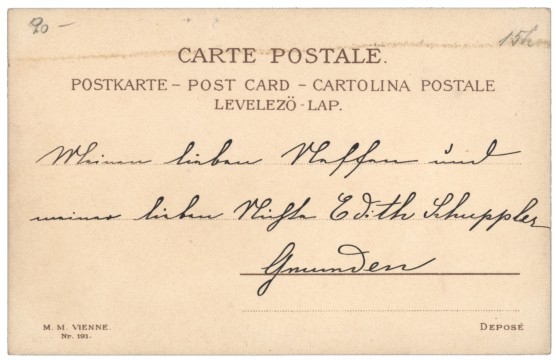 20-
15h
CARTE POSTALE.
POSTKARTE – POST CARD – CARTOLINA POSTALE
LEVELEZÖ-LAP.
Meinen lieben Neffen und
meiner lieben Nichte Edith Schuppler
Gmunden
M. M. VIENNE.
Nr. 191.
DEPOSÉ